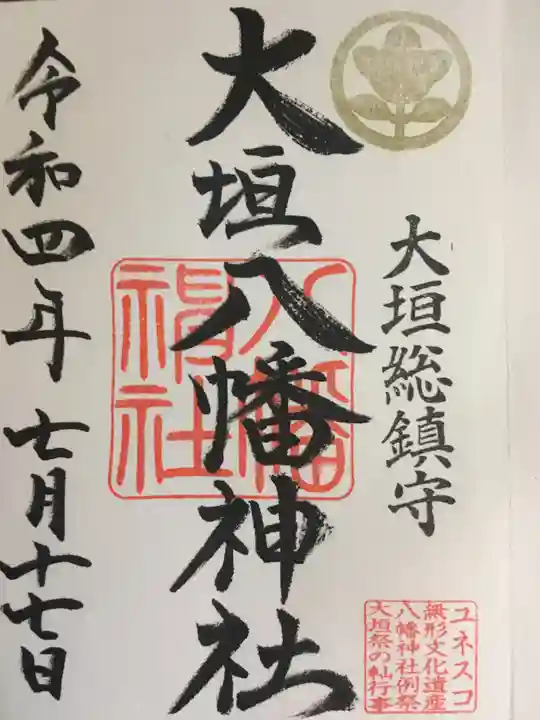 大垣総鎮守
ユネスコ
無形文化遺産
八幡神社例祭
大垣祭の軕行事
大垣八幡神社
八幡神社
令和四年七月十七日